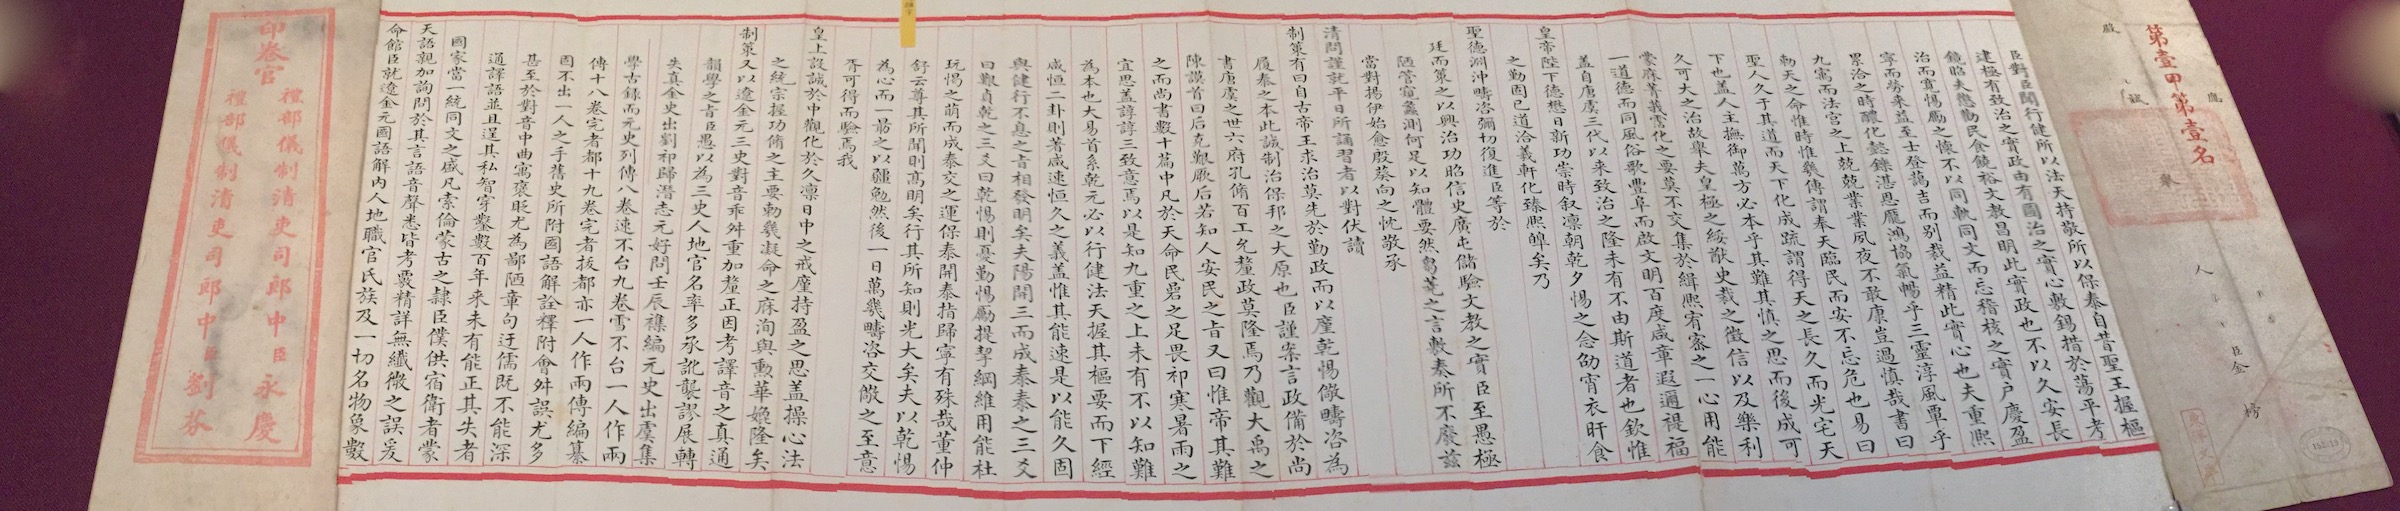 第壹甲第壹名
應
殿
試
舉
人
臣金榜
臣對臣聞行健所以法天持敬所以保泰自昔聖王握樞
建極有致治之實政由有圖治之實心敷錫措於蕩平考
鏡昭夫懲勸民食饒裕文教昌明此實政也不以久安長
治而寬惕勵之懷不以同軌同文而忘稽核之實戶慶盈
寧而勞來益至士登藹吉而別裁益精此實心也夫重熙
累洽之時醲化懿鑠湛恩龐鴻協氣暢乎三靈淳風覃乎
九寓而法宮之上兢兢業業夙夜不敢康豈過慎哉書曰
勅天之命惟時惟幾傳謂奉天臨民而安不忘危也易曰
聖人久于其道而天下化成疏謂得天之長久而光宅天
下也蓋人主撫御萬方必本乎其難其慎之思而後成可
久可大之治故舉夫皇極之綏猷史裁之徵信以及樂利
蒙庥菁莪雲化之要莫不交集於緝熙宥密之一心用能
一道德而同風俗歌豐阜而啟文明百度咸車遐邇禔福
蓋自唐虞三代以來致治之隆未有不由斯道者也欽惟
皇帝陛下德懋日新功崇時叙凜朝乾夕惕之念劭宵衣旰食
之勤固已道洽義軒化臻熙皞矣乃
聖德淵沖疇咨彌切復進臣等於
廷而策之以興治功昭信史廣屯儲驗文教之實臣至愚極
陋管窺蠡測何足以知體要然芻蕘之言敷奏所不廢茲
當對揚伊始愈殷葵向之忱敬承
清問謹就平日所誦習者以對伏讀
制策有曰自古帝王求治莫先於勤政而以廑乾惕儆疇咨為
履泰之本此誠制治保邦之大原也臣謹案言政備於尚
書唐虞之世六府孔脩百工允釐政莫隆焉乃觀大禹之
陳謨首曰后克艱厥后若知人安民之旨又曰惟帝其難
之而尚書數十篇中凡於天命民碞之足畏祁寒暑雨之
宜思蓋諄諄三致意焉以是知九重之上未有不以知難
為本也大易首系乾元必以行健法天握其樞要而下經
咸恒二卦則著咸速恒久之義蓋惟其能速是以能久固
與健行不息之旨相發明矣夫陽開三而成泰泰之三爻
曰艱貞乾之三爻曰乾惕則憂勤惕勵提挈綱維用能杜
玩惕之萌而成泰交之運保泰開泰指歸寧有殊哉董仲
舒云尊其所聞則高明矣行其所知則光大矣夫以乾惕
為心而一最之以彊勉然後一日萬幾疇咨交儆之至意
胥可得而驗焉我
皇上設誠於中觀化於久凜日中之戒廑持盈之思蓋操心法
之統宗握功脩之主要勅幾凝命之庥洵與勳華媲隆矣
制策又以遼金元三史對音乖舛重加釐正因考譯音之真通
韻學之旨臣愚以為三史人地官名率多承訛襲謬展轉
失真金史出劉祁歸潛志元好問壬辰襍編元史出虞集
學古錄而元史列傳八卷速不台九卷雪不台一人作兩
傳十八卷完者都十九卷完者拔都亦一人作兩傳編纂
因不出一人之手舊史所附國語解詮釋附會舛誤尤多
甚至於對音中曲寓褒貶尤為鄙陋章句迂儒既不能深
通譯語並且逞其私智穿鑿數百年來未有能正其失者
國家當一統同文之盛凡索倫蒙古之隸臣僕供宿衛者蒙
天語親加詢問於其言語音聲悉皆考覈精詳無纖微之誤爰
命館臣就遼金元國語解內人地職官氏族及一切名物象數
印卷官
禮部儀制清吏司郎中臣永慶
禮部儀制清吏司郎中臣劉芬